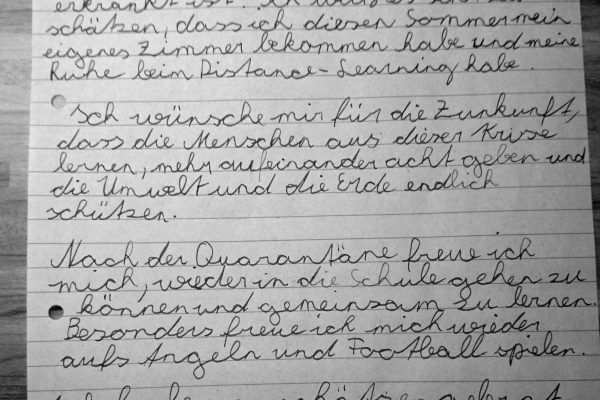 erkrankt ist. Ich
schätzen, dass ich diesen Sommer mein
eigenes Zimmer bekommen habe und meine
Ruhe beim Distance-Learning habe.
Ich wünsche mir für die Zunkunft,
dass die Menschen aus dieser Krise
lernen, mehr aufeinander acht geben und
die Umwelt und die Erde endlich
schützen.
Nach der Quarantäne freue ich
mich, wieder in die Schule gehen zu
können und gemeinsam zu lernen.
Besonders freue ich mich wieder
aufs Angeln und Football spielen.